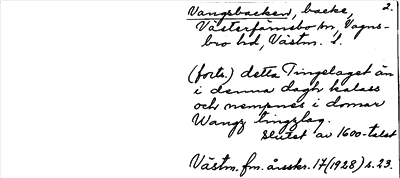 Vangsbacken, backe, 2.
Västerfärnsbo sn, Vagns-
bro hd, Västm. l.
(forts.) detta Tingelaget än
i denna dagh kalass
och nempnes i domar
Wangz tingzlag.
Slutet av 1600-talet
Västm. fm. årsskr. 17 (1928) s. 23.